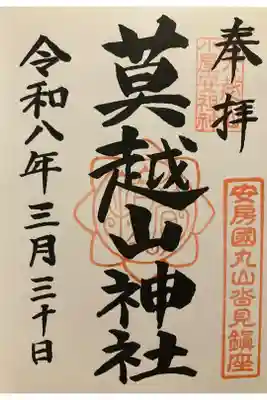 奉拝
安房國丸山沓見鎮座
莫越山神社
令和八年三月三十日